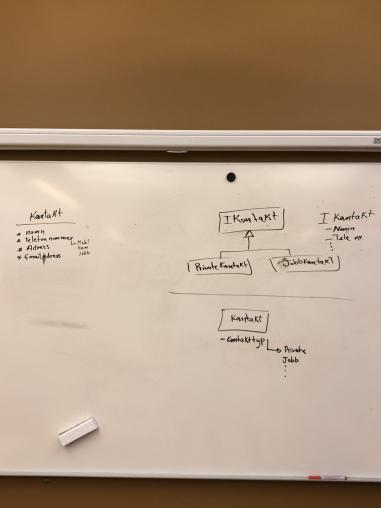 Kontakt
* namn
* Teletonnummer
↳ Mobil
Hem
Jobb
* Adress
* Emailadress
I Kontakt
PrivateKontakt
JobbKontakt
I Kontakt
- Namn
- Tele nr.
Kontakt
- Kontakttyp
↳ Private
Jobb